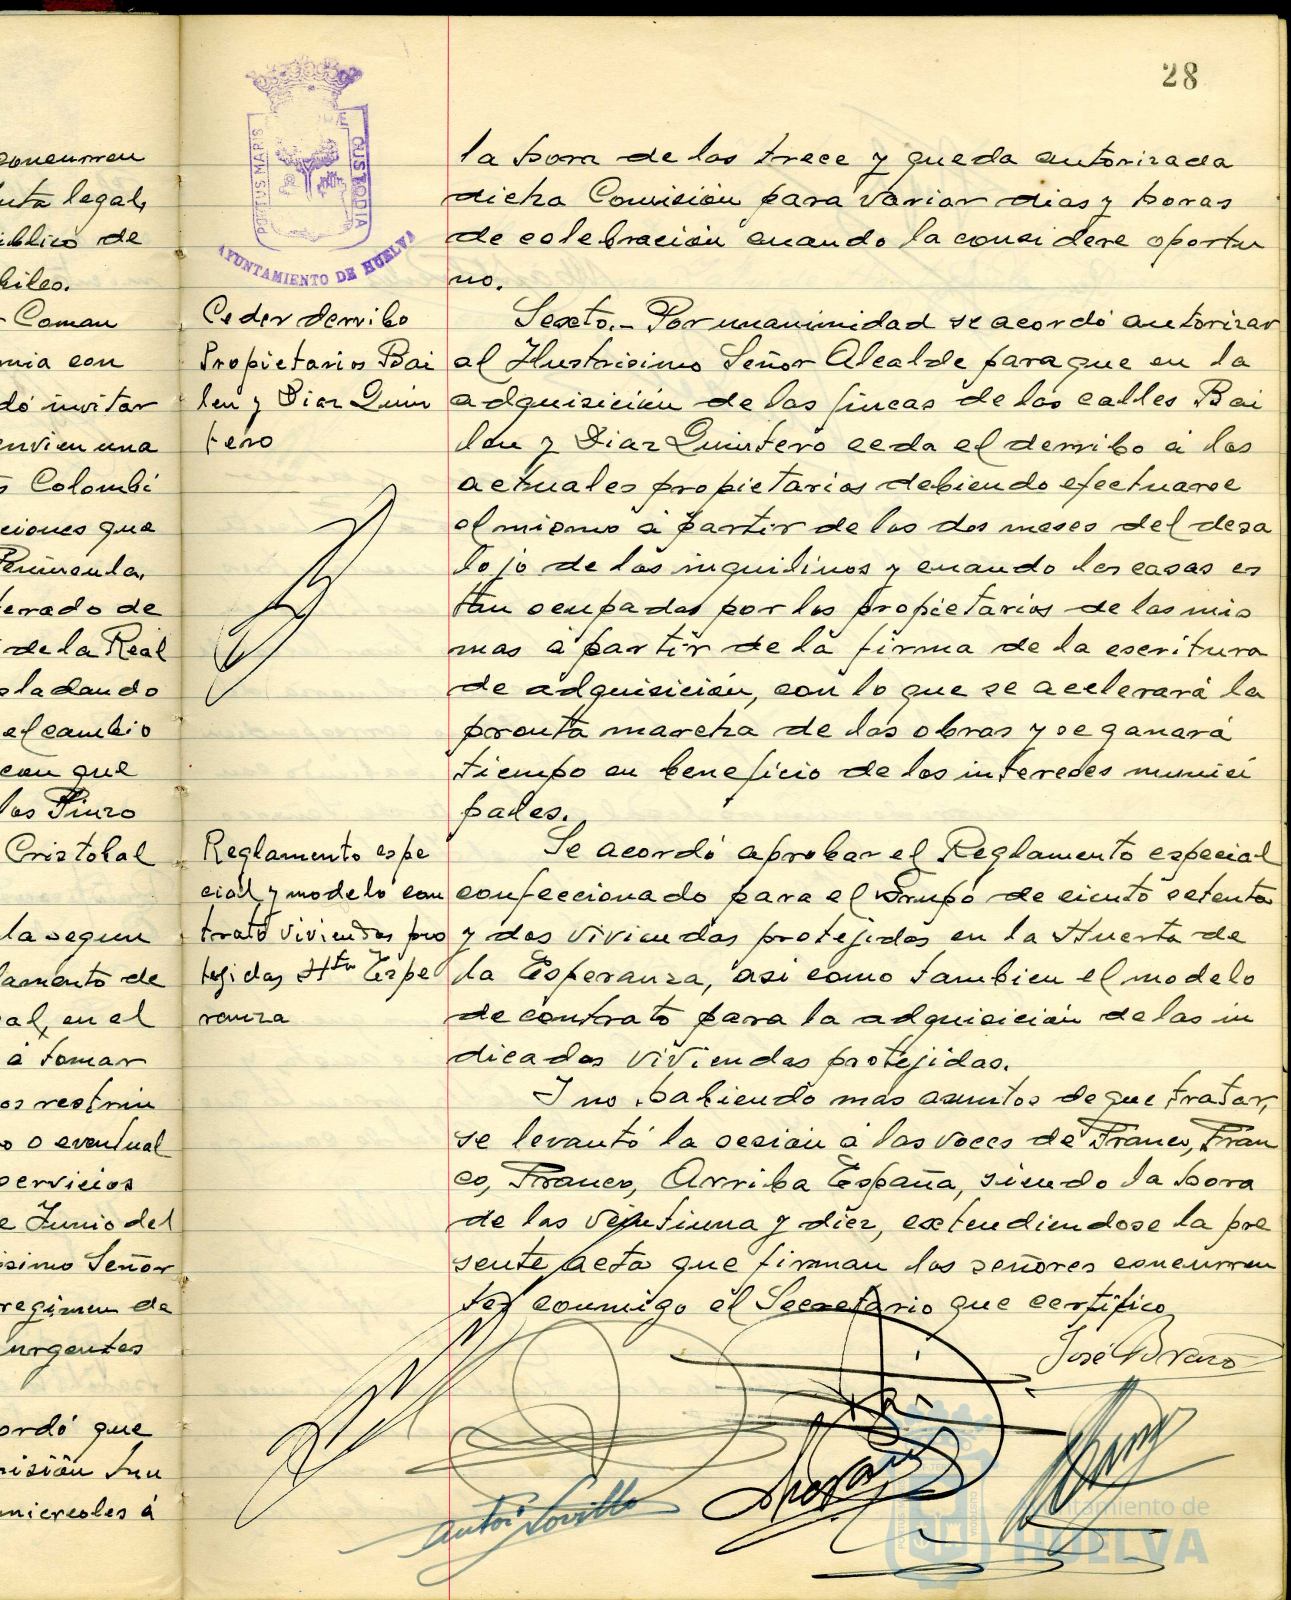 28
PORTUS MARIS
CUSTODIA
AYUNTAMIENTO DE HUELVA
concurren
legal,
público de
biles.
Coman
con
dó invitar
envien una
Colombi
ciones que
Peninsula,
erado de
de la Real
sladando
el cambio
con que
los Pinzo
Cristobal
la segun
lamento de
al, en el
á tomar
os restrin
o o eventual
servicios
e Junio del
isimo Señor
regimen de
urgentes
ordó que
misión
miercoles á
la hora de las trece y queda autorizada
dicha Comisión para variar dias y horas
de celebración cuando la considere oportu
no.
Ceder derribo
Propietarios Bai
len y Diaz Quin
tero
Sexto.- Por unanimidad se acordó autorizar
al Ilustrisimo Señor Alcalde para que en la
adquisición de las fincas de las calles Bai
len y Diaz Quintero ceda el derribo á los
actuales propietarios debiendo efectuarse
el mismo á partir de los dos meses del desa
lojo de los inquilinos y cuando las casas es
tan ocupadas por los propietarios de las mis
mas á partir de la firma de la escritura
de adquisición, con lo que se acelerará la
pronta marcha de las obras y se ganará
tiempo en beneficio de los intereses munici
pales.
Reglamento espe
cial y modelo con
trato viviendas pro
tejidas Hta Espe
ranza
Se acordó aprobar el Reglamento especial
confeccionado para el Grupo de ciento setenta
y dos viviendas protejidas en la Huerta de
la Esperanza, asi como tambien el modelo
de contrato para la adquisición de las in
dicadas viviendas protejidas.
I no habiendo mas asuntos de que tratar,
se levantó la sesión á las voces de Franco, Fran
co, Franco, Arriba España, siendo la hora
de las veintiuna y diez, extendiendose la pre
sente acta que firman los señores concurren
tes conmigo el Secretario que certifico
José Brazo
Ayuntamiento de
HUELVA